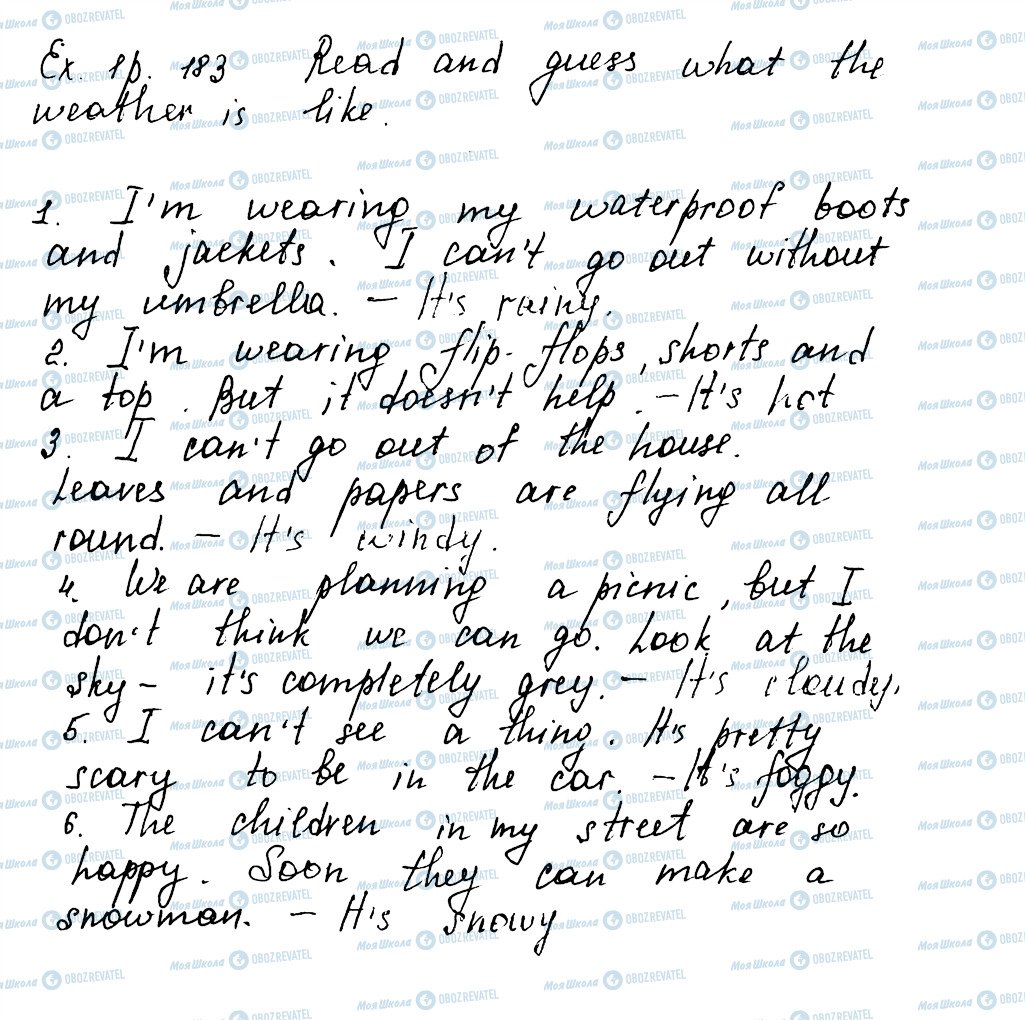 Ex. 1p. 183 Read and guess what the
weather is like.
1. I'm wearing my waterproof boots
and jackets. I can't go out without
my umbrella. – It's rainy.
2. I'm wearing flip-flops, shorts and
a top. But it doesn't help. – It's hot
3. I can't go out of the house.
Leaves and papers are flying all
round. – It's windy.
4. We are planning a picnic, but I
don't think we can go. Look at the
sky – it's completely grey. – It's cloudy.
5. I can't see a thing. It's pretty
scary to be in the car. – It's foggy.
6. The children in my street are so
happy. Soon they can make a
snowman. – It's snowy